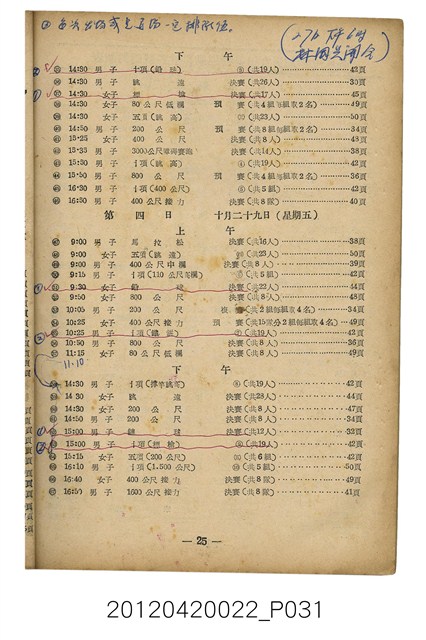 下午
14:30 男子 十項(鉛球) (共19人) 42頁
14:30 男子 跳遠 決賽(共26人) 30頁
14:30 女子 標槍 決賽(共17人) 45頁
14:30 女子 80公尺低欄 預賽(共4組每組取2名) 49頁
14:30 女子 五項(跳高) (共23人) 50頁
14:50 男子 200公尺 預賽(共8組每組取2名) 34頁
15:25 女子 400公尺 決賽(共8人) 48頁
15:35 男子 3000公尺障碍賽跑 決賽(共14人) 38頁
15:30 男子 十項(跳高) (共19人) 42頁
15:50 男子 800公尺 預賽(共4組每組取2名) 36頁
16:30 男子 十項(400公尺) (共5組) 42頁
16:30 男子 1600公尺接力 決賽(共8隊) 40頁
第四日 十月二十九日(星期五)
上午
9:00 男子 馬拉松 決賽(共16人) 38頁
9:00 女子 五項(跳遠) (共23人) 50頁
9:00 男子 400公尺中欄 決賽(共8人) 39頁
9:15 男子 十項(110公尺高欄) (共5組) 42頁
9:30 女子 鉛球 決賽(共22人) 44頁
9:50 女子 800公尺 決賽(共8人) 48頁
10:05 男子 200公尺 複賽(共2組每組取4名) 34頁
10:25 女子 400公尺接力 預賽(共15隊分2組每組取4名) 49頁
10:25 男子 十項(鐵餅) (共19人) 42頁
10:50 男子 800公尺 決賽(共8人) 36頁
11:15 女子 80公尺低欄 決賽(共8人) 49頁
11.10
下午
14:30 男子 十項(撐竿跳高) (共19人) 42頁
14:30 女子 跳遠 決賽(共28人) 44頁
14:30 女子 200公尺 決賽(共8人) 47頁
14:50 男子 200公尺 決賽(共8人) 34頁
15:00 男子 鏈球 決賽(共12人) 33頁
15:00 男子 十項(標槍) (共19人) 42頁
15:15 女子 五項(200公尺) (共6組) 42頁
16:10 男子 十項(1,500公尺) (共5組) 50頁
16:40 女子 400公尺接力 決賽(共8隊) 49頁
16:50 男子 1600公尺接力 決賽(共8隊) 41頁
— 25 —
20120420022_P031